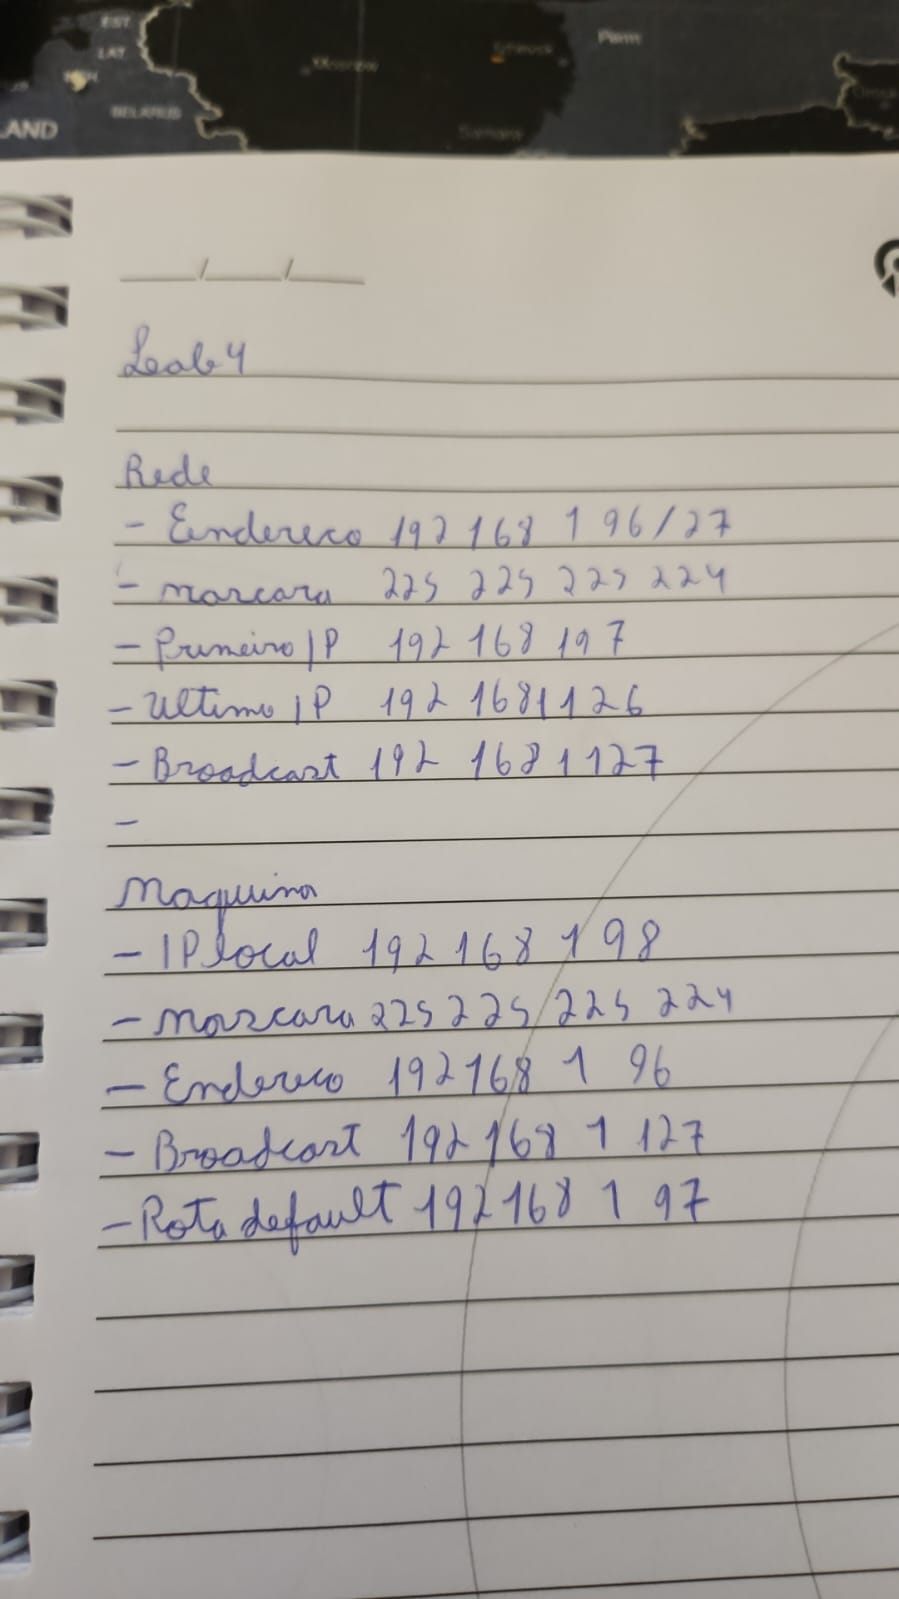 EST
LAT
BELARUS
LAND
Moscow
Perm
Samara
Omsk
Leab 4
Rede
- Eendereco 192 168 1 96/27
- mascara 225 225 225 224
- Primeiro IP 192 168 1 97
- Ultimo IP 192 168 1 126
- Broadcast 192 168 1 127
-
Maquina
- IP local 192 168 1 98
- mascara 225 225 225 224
- Endereco 192 168 1 96
- Broadcast 192 168 1 127
- Rota default 192 168 1 97